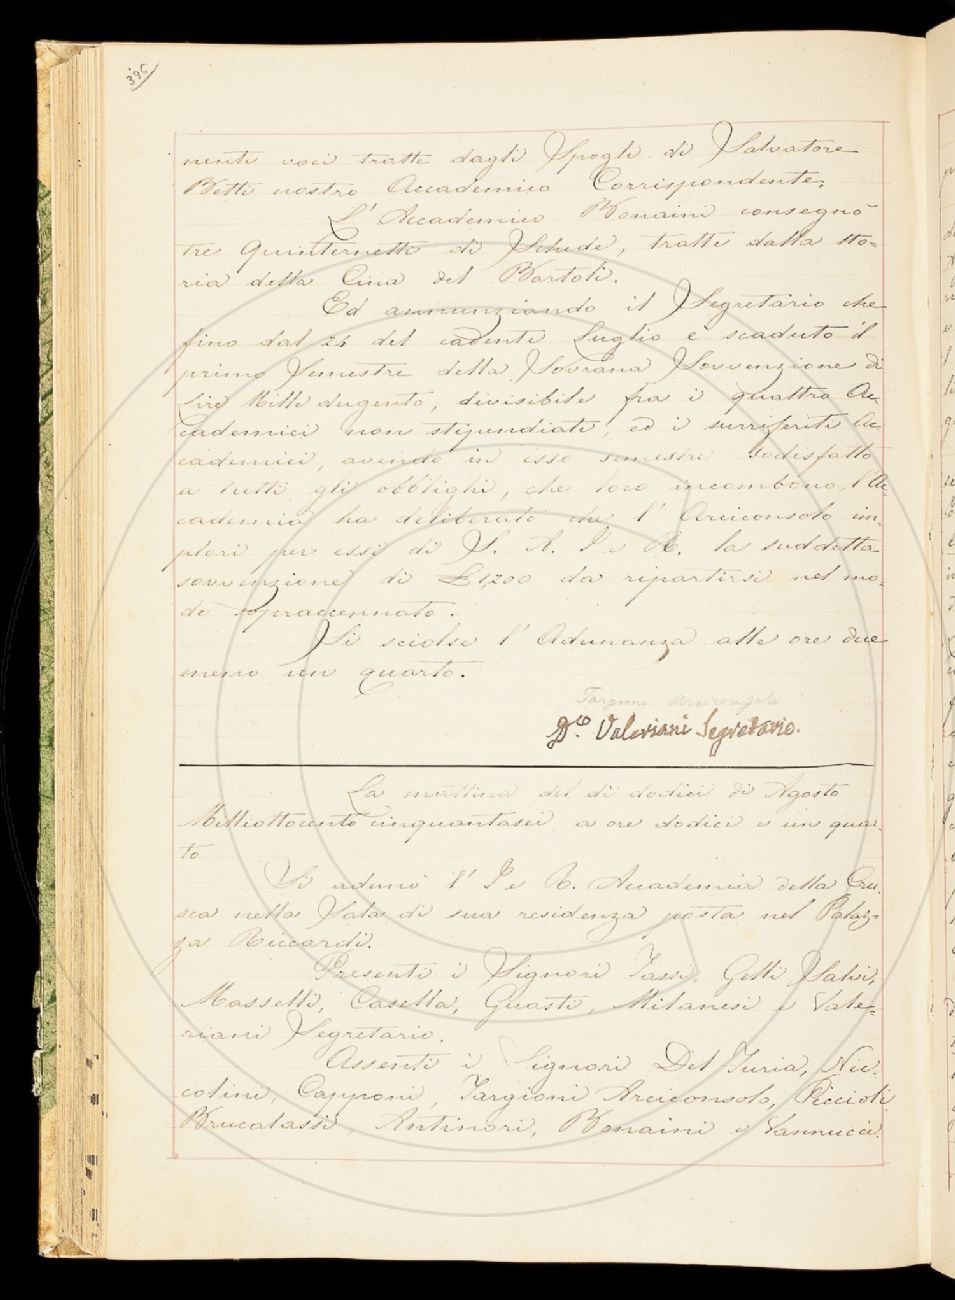 396
nenti voci tratte dagli Spogli di Salvatore
Betti nostro Accademico Corrispondente.
L' Accademico Bonaini consegnò
tre Quinternetti di Schede, tratte dalla Sto=
ria della Cina del Bartoli.
Ed annunziando il Segretario che
fino dal 26 del cadente Luglio è scaduto il
primo Semestre della Sovrana Sovvenzione di
Lire Mille dugento, divisibile fra i quattro Ac=
cademici non stipendiati, ed i surriferiti Ac=
cademici, avendo in esso semestre sodisfatto
a tutti gli obblighi, che loro incombono, l'Ac=
cademia ha deliberato che l' Arciconsolo im=
plori per essi di S. A. I e R. la suddetta
sovvenzione di £ 1,200 da ripartirsi nel mo=
do sopraccennato.
Si sciolse l' Adunanza alle ore due
meno un quarto.
Targioni Arciconsolo
D.co Valeriani Segretario.
La mattina del dì dodici di Agosto
Milleottocento cinquantasei, a ore dodici e un quar=
to
Si adunò l' I e R. Accademia della Cru=
sca nella Sala di sua residenza posta nel Palaz=
zo Riccardi.
Presenti i Signori Tassi, Gelli, Salvi,
Masselli, Casella, Guasti, Milanesi e Vale=
riani Segretario.
Assenti i Signori Del Furia, Nic=
colini, Capponi, Targioni Arciconsolo, Piccioli
Brucalassi, Antinori, Bonaini e Vannucci.